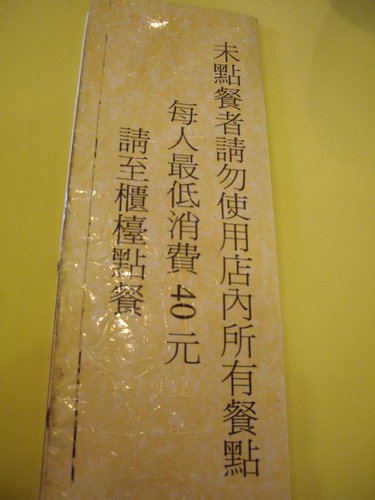 未點餐者請勿使用店內所有餐點
每人最低消費40元
請至櫃檯點餐